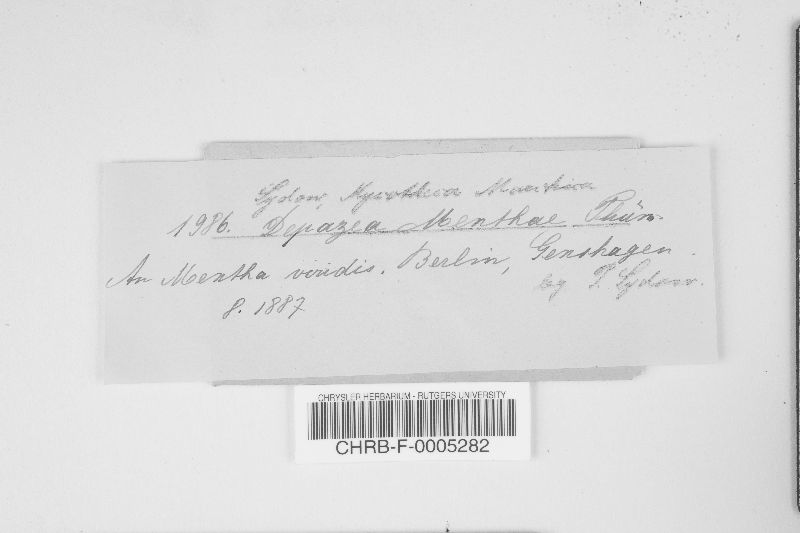 Sydow, Mycotheca Marchica
1986. Depazea Menthae Thüm.
An Mentha viridis. Berlin, Genshagen.
8. 1887
leg P. Sydow.
CHRYSLER HERBARIUM - RUTGERS UNIVERSITY
CHRB-F-0005282